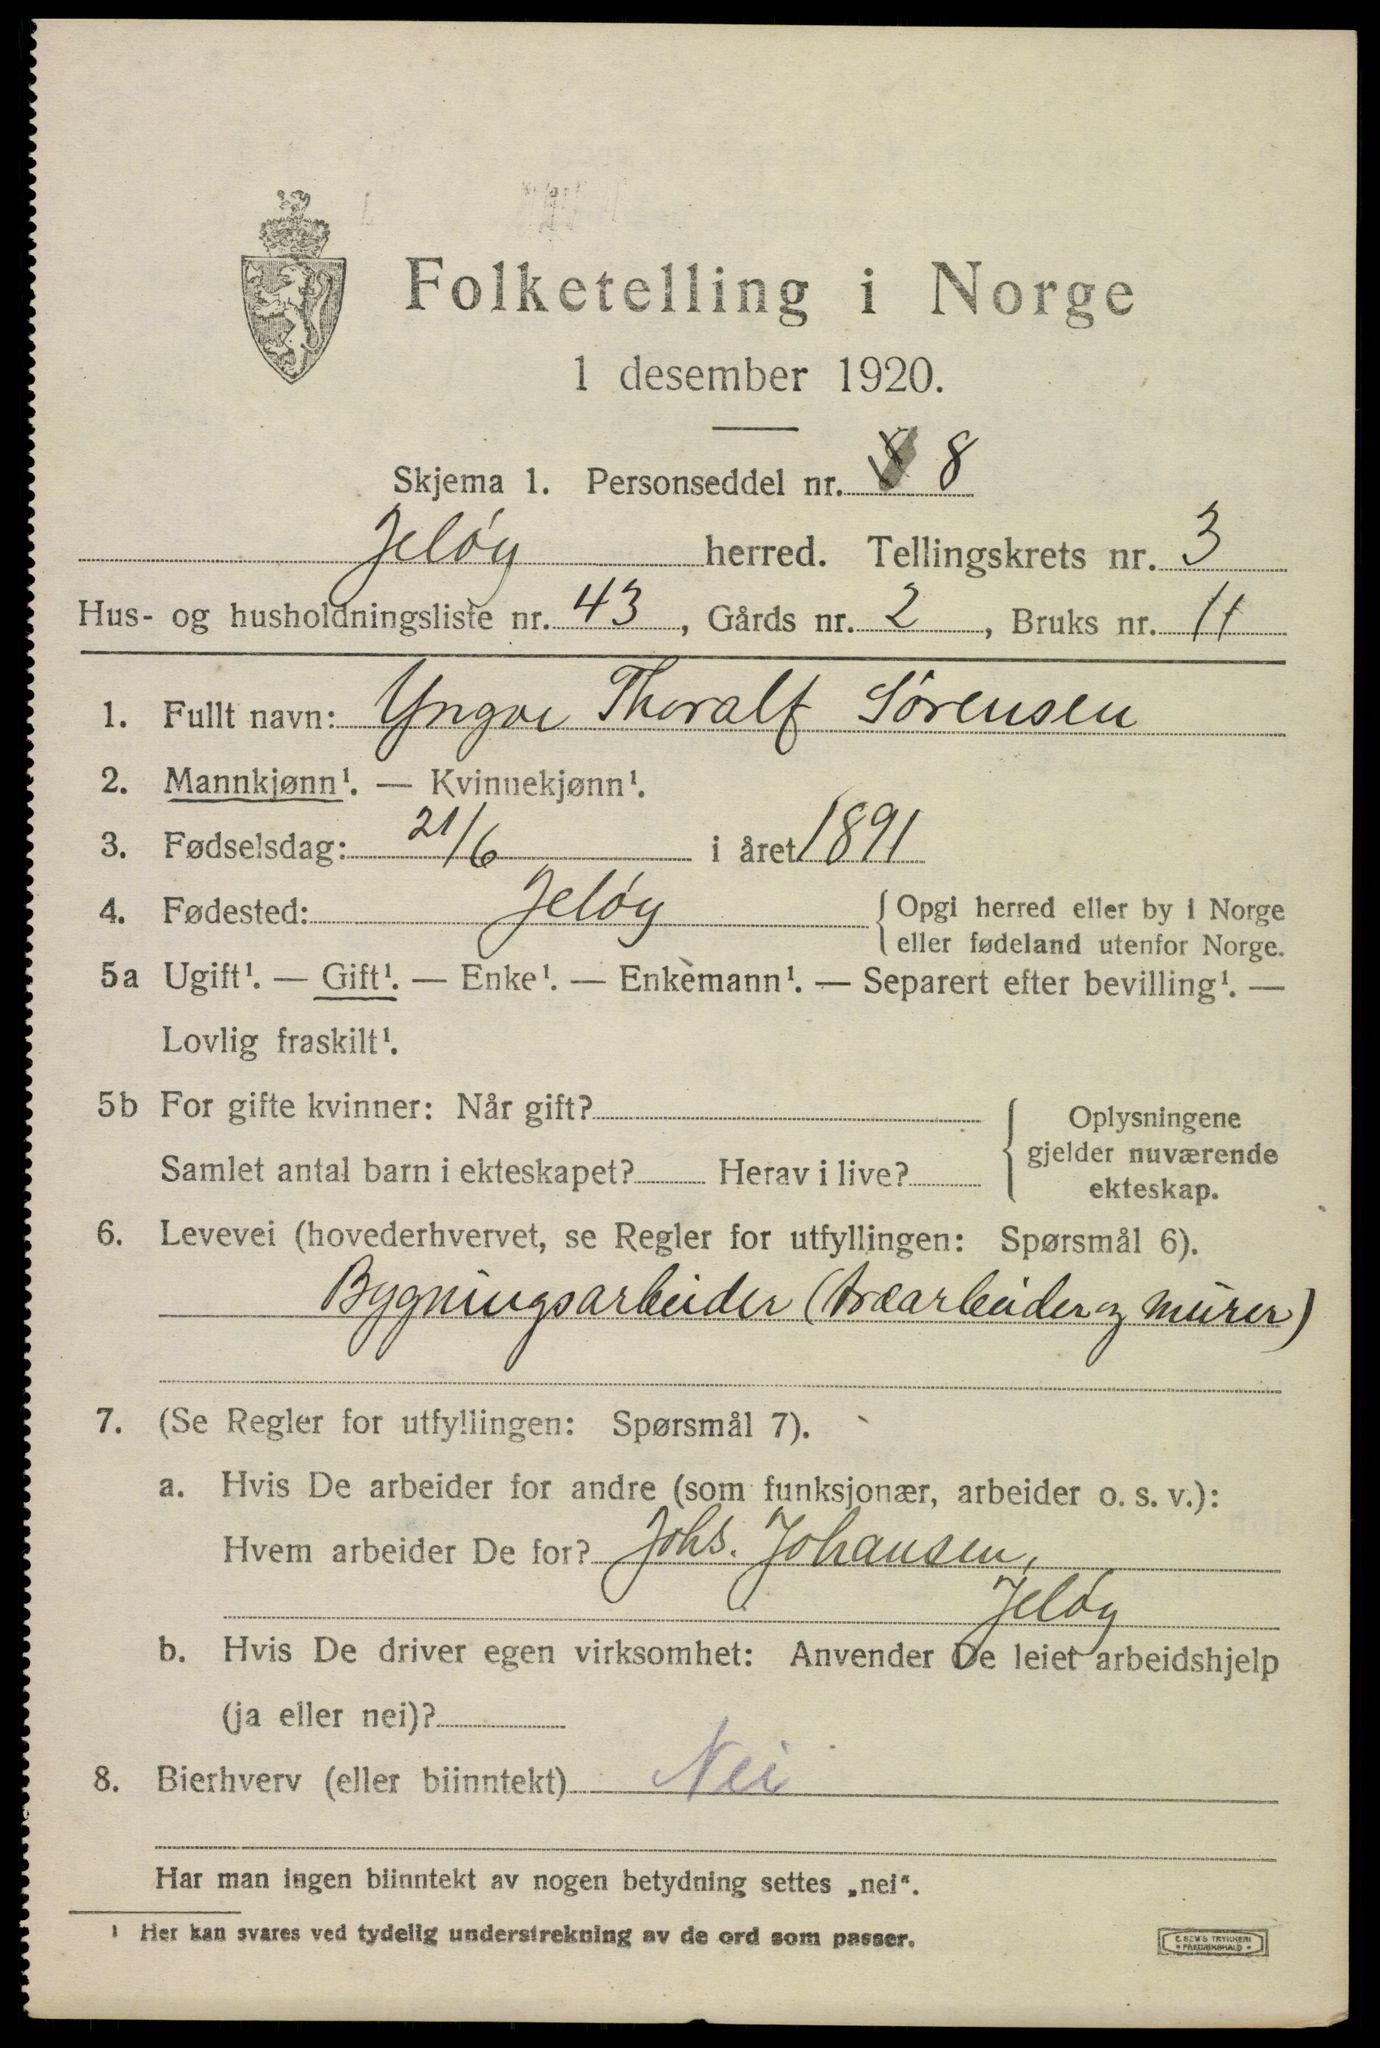 Folketelling i Norge
1 desember 1920.
Skjema 1. Personseddel nr. 8 8
Jeløy herred. Tellingskrets nr. 3
Hus- og husholdningsliste nr. 43, Gårds nr. 2, Bruks nr. 11
1. Fullt navn: Yngve Thoralf Sørensen
2. Mannkjønn¹. — Kvinnekjønn¹.
3. Fødselsdag: 21/6 i året 1891
4. Fødested: Jeløy { Opgi herred eller by i Norge
eller fødeland utenfor Norge.
5a Ugift¹. — Gift¹. — Enke¹. — Enkemann¹. — Separert efter bevilling¹. —
Lovlig fraskilt¹.
5b For gifte kvinner: Når gift?
Samlet antal barn i ekteskapet? Herav i live?
Oplysningene
gjelder nuværende
ekteskap.
6. Levevei (hovederhvervet, se Regler for utfyllingen: Spørsmål 6).
Bygningsarbeider (træarbeider og murer)
7. (Se Regler for utfyllingen: Spørsmål 7).
a. Hvis De arbeider for andre (som funksjonær, arbeider o. s. v.):
Hvem arbeider De for? Johs. Johansen,
Jeløy
b. Hvis De driver egen virksomhet: Anvender De leiet arbeidshjelp
(ja eller nei)?
8. Bierhverv (eller biinntekt) Nei
Har man ingen biinntekt av nogen betydning settes „nei“.
¹ Her kan svares ved tydelig understrekning av de ord som passer.
E. SEM'S TRYKKERI
* FREDRIKSHALD *